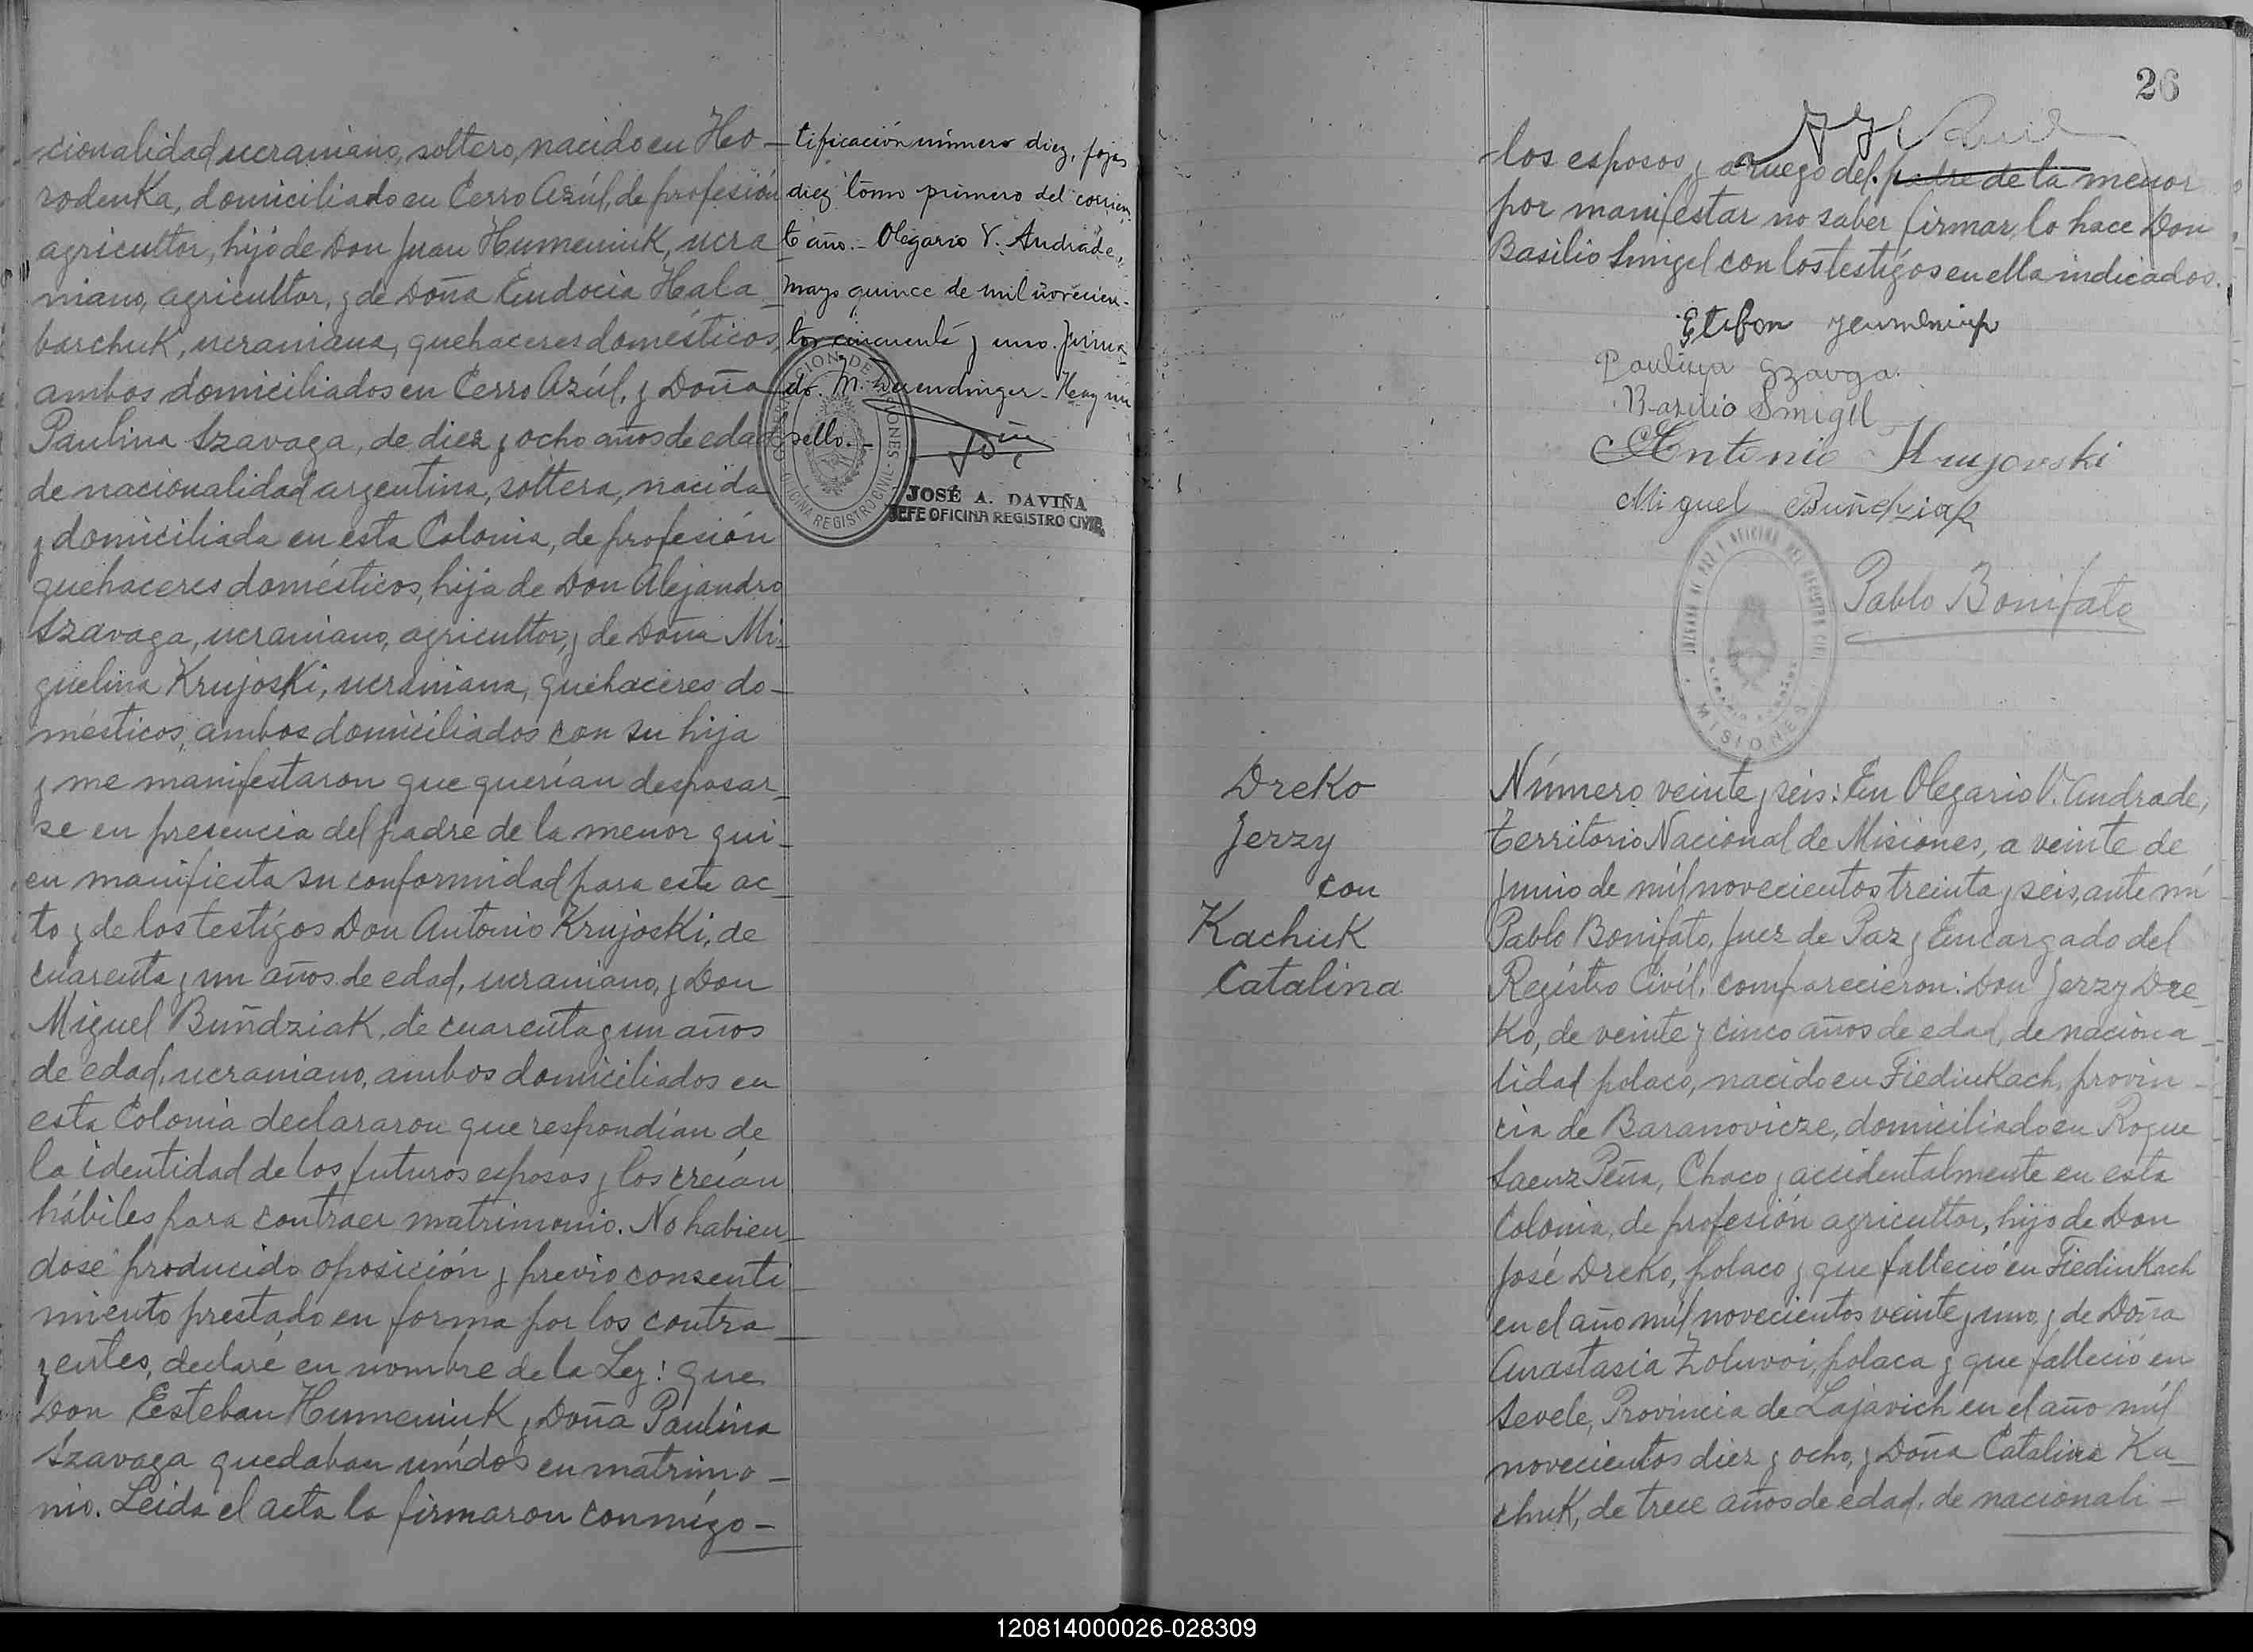 cionalidad ucraniano, soltero, nacido en Ho-
rodenka, domiciliado en Cerro Azúl, de profesión
agricultor, hijo de Don Juan Humeniuk, ucra
niano, agricultor, y de Doña Eudocia Hala
barchuk, ucraniana, quehaceres domésticos,
ambos domiciliados en Cerro Azúl, y Doña
Paulina Szavaga, de diez y ocho años de edad
de nacionalidad argentina, soltera, nacida
y domiciliada en esta Colonia, de profesión
quehaceres domésticos, hija de Don Alejandro
Szavaga, ucraniano, agricultor, y de Doña Mi-
guelina Krujoski, ucraniana, quehaceres do-
mésticos, ambos domiciliados con su hija
y me manifestaron que querían desposar-
se en presencia del padre de la menor qui-
en manifiesta su conformidad para este ac-
to y de los testígos Don Antonio Krujoski, de
cuarenta y un años de edad, ucraniano, y Don
Miguel Buñdziak, de cuarenta y un años
de edad, ucraniano, ambos domiciliados en
esta Colonia declararon que respondían de
la identidad de los futuros esposos y los creían
hábiles para contraer matrimonio. No habien-
dose producido oposición y previo consenti
miento prestado en forma por los contra-
yentes, declaré en nombre de la Ley: que
Don Esteban Humeniuk y Doña Paulina
Szavaga quedaban unídos en matrimo-
nio. Leida el acta la firmaron conmígo-
tificación número diez, fojas
diez tomo primero del corrien
te año.- Olegario V. Andrade,
mayo quince de mil novecien-
tos cincuenta y uno. Firma
do. M. Hay un
sello.-
JOSÉ A. DAVIÑA
JEFE OFICINA REGISTRO CIVIL
26
los esposos y a ruego del padre de la menor
por manifestar no saber firmar, lo hace Don
Basilio Smigel con los testígos en ella indicados.
Paulina Szavga
Basilio Smigel
Antonio Krujovski
Miguel Buñdziak
Pablo Bonifato
MISIONES
Dreko
Jerzy
con
Kachuk
Catalina
Número veinte y seis: En Olegario V. Andrade,
territorio Nacional de Misiones, a veinte de
junio de míl novecientos treinta y seis, ante mí
Pablo Bonifato, Juez de Paz y Encargado del
Regístro Civíl, comparecieron: Don Jerzy Dre-
ko, de veinte y cinco años de edad, de naciona-
lidad polaco, nacido en Fiedinkach, provin-
cia de Baranovicze, domiciliado en Roque
Saenz Peña, Chaco y accidentalmente en esta
Colonia, de profesión agricultor, hijo de Don
José Dreko, polaco y que falleció en Fiedinkach
en el año míl novecientos veinte y uno y de Doña
Anastasia Zoluvoi, polaca y que falleció en
Sevele, Provincia de Lajavich en el año míl
novecientos diez y ocho, y Doña Catalina Ka-
chuk, de trece años de edad, de nacionali-
120814000026-028309